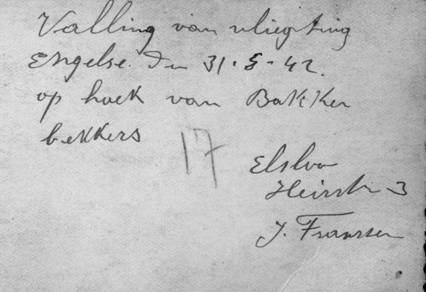 Valling van vliegting
Engelse. Den 31-5-42.
op hoek van Bakker
bekkers
17
Elsloo
Heirstr 3
J. Franssen